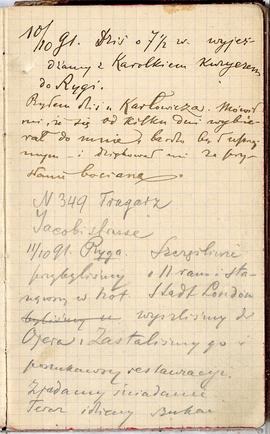 10/10 91. Dziś o 7½ w. wyjeż-
dżamy z Karolkiem Kuryerem
do Rygi.
Byłem dziś u Karłowicza. Mówił
mi, że się od kilku dni wybie-
rał do mnie, bardzo był uprzej-
mym i dziękował mi za przy-
słanie bociana.
N 349 Tragatz
Jacobistrasse
11/10 91. Ryga. Szczęśliwie
przybyliśmy o 11 rano i sta-
nęliśmy w hot. Stadt London
wyszliśmy do
Opera i Zastaliśmy go i
poszukawszy restauracyę
Zjadamy śniadanie
Teraz idziemy